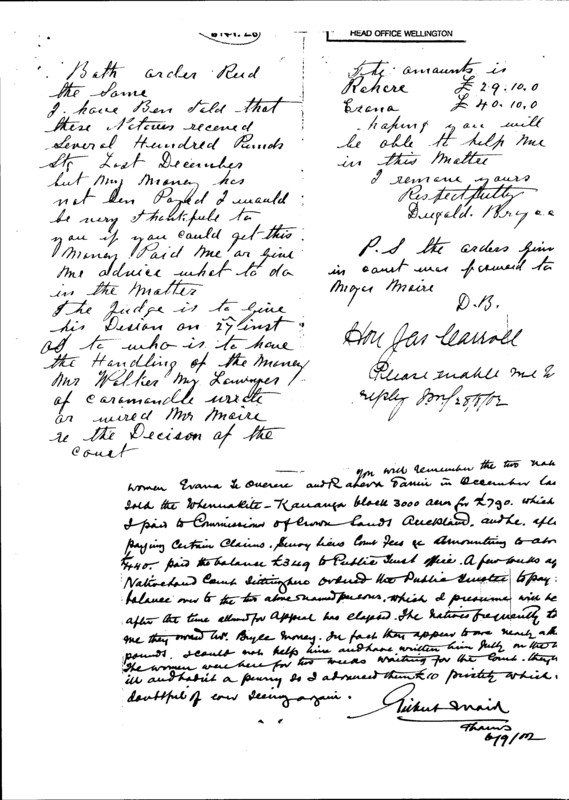 HEAD OFFICE WELLINGTON
Bath order Red
the Same
I have Ben told that
these Natives receved
Several Hundred Punds
Stg Last December
but my money has
not ben Payed I would
be very Thankfull to
you if you could get this
Money Paid me or give
me advice what to do
in the Matter
The Judge is to Give
his Desion on 27 inst
as to who is to have
the Handling of the Money
Mr Walker My Lawyer
of Caramandle wrote
or wired Mr Maire
re the Decison of the
court
The amounts is
Rahera £ 29.10.0
Erana £ 40.10.0
hoping you will
be able to help me
in this Matter
I remane yours
Respectfully
Dugald. Bryce
P.S the orders given
in court was forward to
Mager Maire
D.B.
Hon Jas Carroll
Please enable me to
reply 28/8/02
you will remember the two
women Erana Te and Rahera Tanui in December
sold the Whenuakite-Kauanga block 3000 acres for £790. which
I paid to Commissioner of Crown Lands Auckland. and he. after
paying certain claims. Survey liens Court Fees &c amounting to
£440. paid the balance £349 to Public Trust office. A few weeks
Native Land Court sitting here ordered the Public Trustee to pay
balance over to the two above named persons, which I presume will be
after the time allowed for Appeal has elapsed. The Natives frequently
me they owed Mr. Bryce money. In fact they appear to owe nearly
pounds. I could not help him and have written him fully on the
The women were here for two weeks waiting for the Court. they
ill and hadnt a penny so I advanced them £10 privately which
doubtful of ever seeing again.
Gilbert Mair
Thames
6/9/02